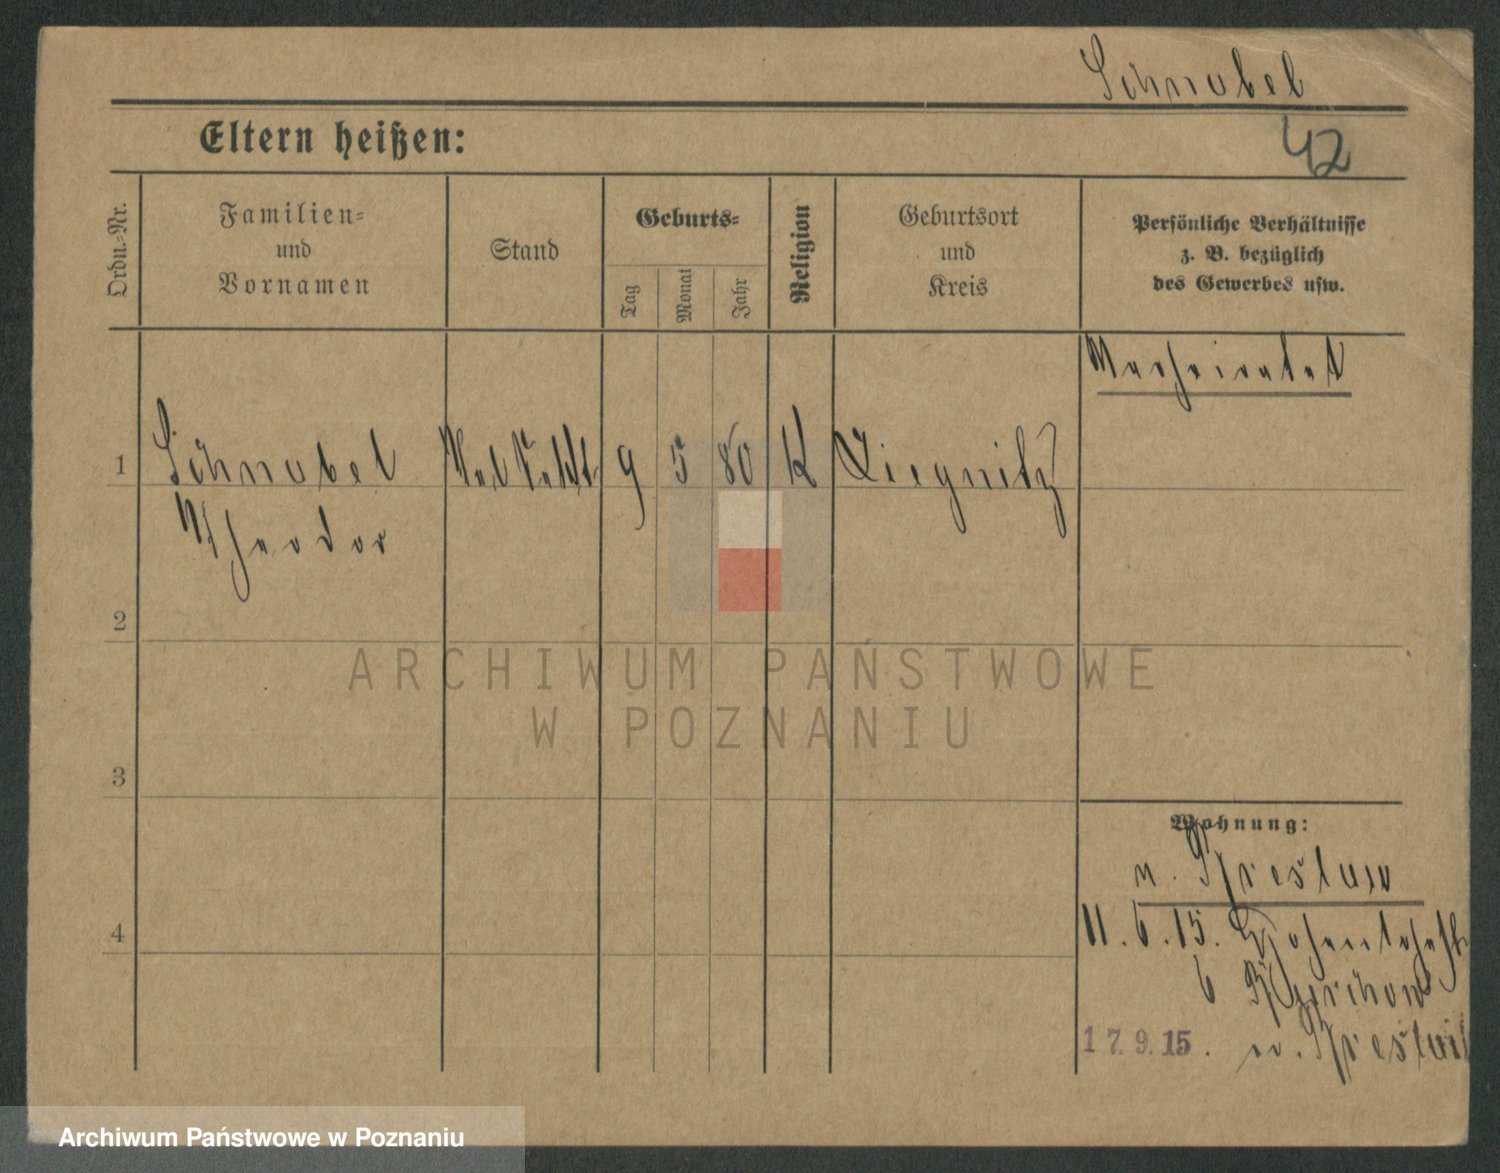 Schnabel
Eltern heißen:
42
Ordn.-Nr.
Familien-
und
Vornamen
Stand
Geburts-
Tag
Monat
Jahr
Religion
Geburtsort
und
Kreis
Persönliche Verhältnisse
z. B. bezüglich
des Gewerbes usw.
Verheiratet
1
Schnabel
9 5 80 K Liegnitz
Theodor
2
ARCHIWUM PAŃSTWOWE
W POZNANIU
3
Wohnung:
n. Breslau
4
11.6.15.
6
17.9.15. n. Breslau
Archiwum Państwowe w Poznaniu